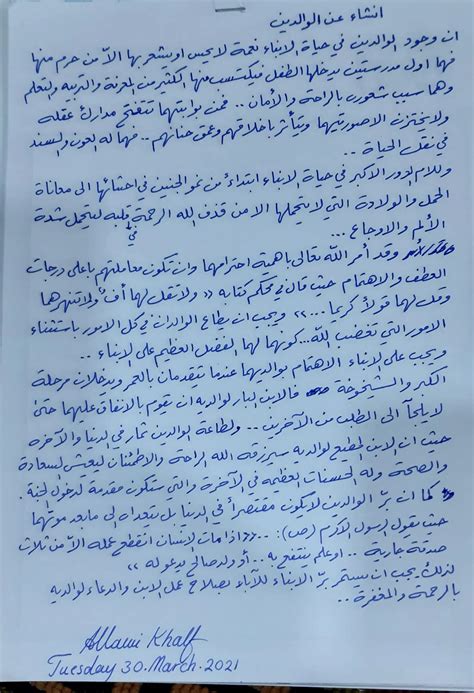 انشاء عن الوالدين
ان وجود الوالدين في حياة الابناء نعمة لا يحس او يشعر بها الا من حرم منها
فهما اول مدرستين يدخلها الطفل فيكتسب منها الكثير من المعرفة والتربية والتعلم
وهما سبب شعوره بالراحة والأمان .. فمن بوابتهما تتفتح مدارك عقله
ولا يختزن الا صورتيهما ويتأثر باخلاقهم وعمق حنانهم .. فهما له العون والسند
في تلك الحياة ..
وللام الدور الاكبر في حياة الابناء ابتداءً من نمو الجنين في احشائها الى معاناة
الحمل والولادة التي لا يتحملها الا من قذف الله الرحمة في قلبه ليتحمل شدة
الألم والاوجاع ...
وقد أمر الله تعالى باهمية احترامهما وان تكون معاملتهم باعلى درجات
العطف والاهتمام حيث قال في محكم كتابه " ولا تقل لهما أف ولا تنهرهما
وقل لهما قولاً كريما ... " ويجب ان يطاع الوالدان في كل الامور باستثناء
الامور التي تغضب الله ... كونهما لهما الفضل العظيم على الابناء ..
ويجب على الابناء الاهتمام بوالديهما عندما يتقدمان بالعمر ويدخلان مرحلة
الكبر والشيخوخة فالابن البار لوالديه ان يقوم بالانفاق عليهما حتى
لا يلجآ الى الطلب من الآخرين .. ولطاعة الوالدين ثمار في الدنيا والآخره
حيث ان الابن المطيع لوالديه سيرزقه الله الراحة والاطمئنان ليعيش لسعادة
والصحة وله الحسنات العظيمه في الآخرة والتي ستكون مقدمة لدخول الجنة .
كما ان برّ الوالدين لا يكون مقتصراً في الدنيا بل يتعداه الى ما بعد موتهما
حيث يقول الرسول الاكرم (ص) : .. " اذا مات الانسان انقطع عمله الا من ثلاث
صدقة جارية .. او علم ينتفع به .. أو ولد صالح يدعو له "
لذلك يجب ان يستمر برّ الابناء للآباء بصلاح عمل الابن والدعاء لوالديه
بالرحمة والمغفرة ..
Allawi Khalf
Tuesday 30.March.2021